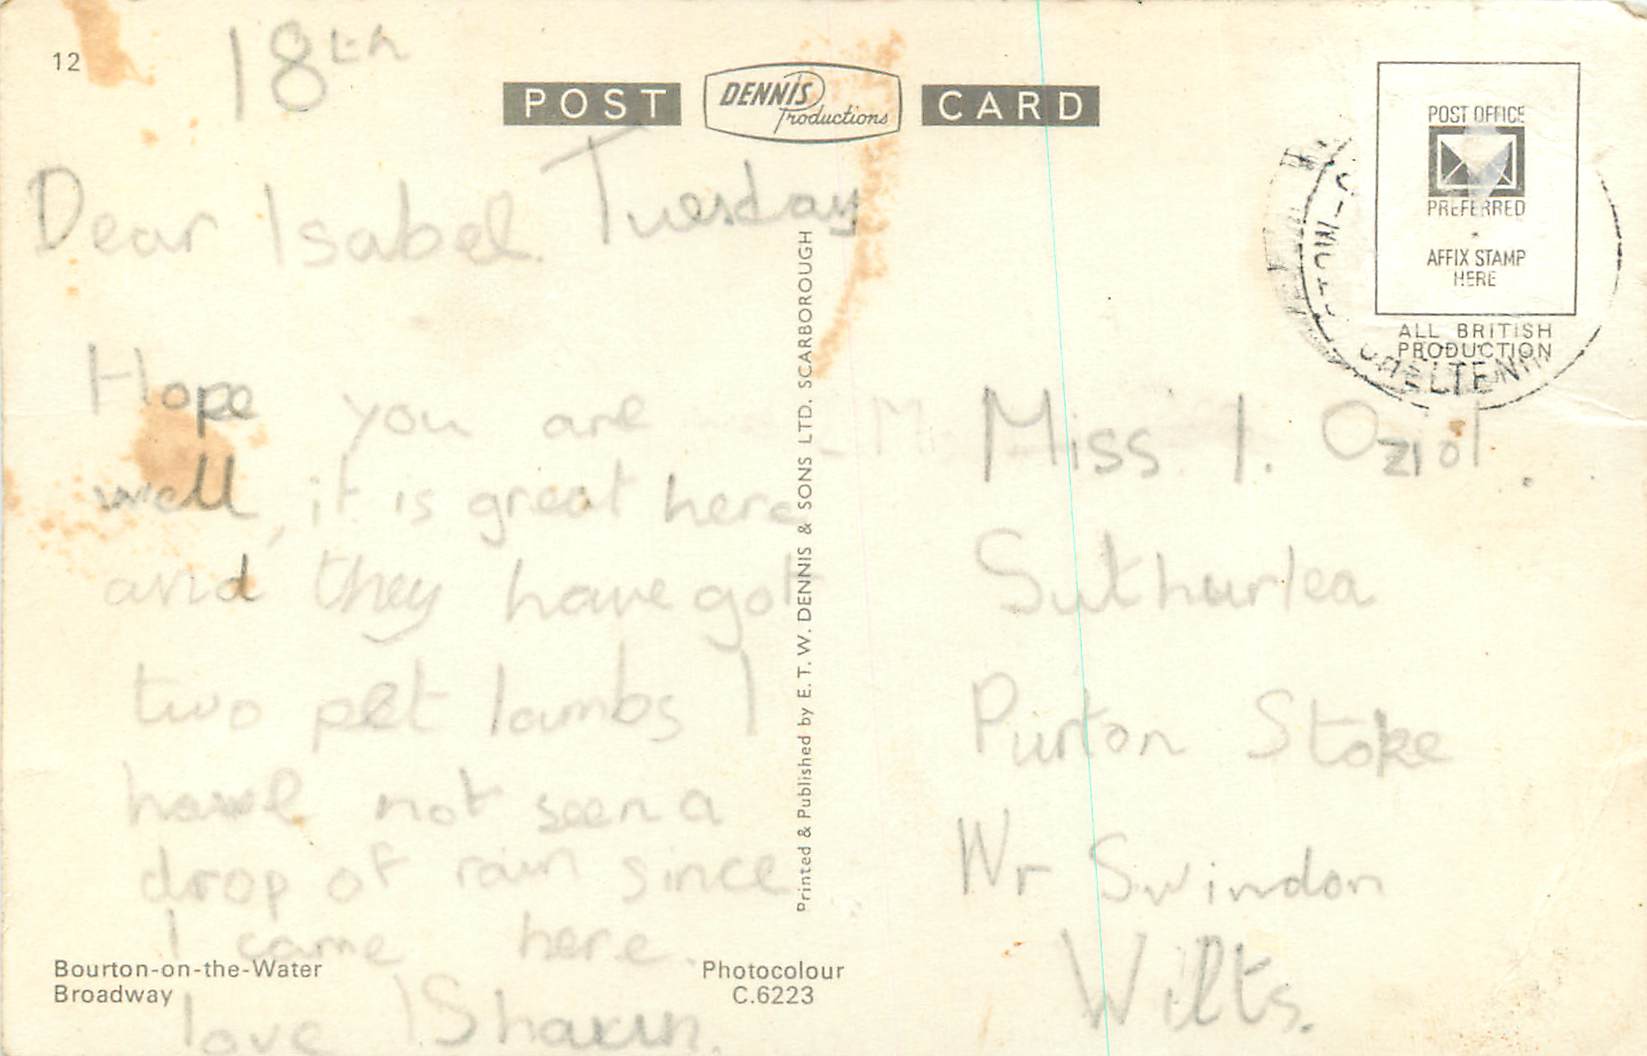 12
18th
POST DENNIS Productions CARD
Tuesday
Dear Isabel.
Hope you are
well, it is great here
and they have got
two pet lambs I
have not seen a
drop of rain since
I came here.
love
Bourton-on-the-Water
Broadway
Photocolour
C.6223
Printed & Published by E. T. W. DENNIS & SONS LTD. SCARBOROUGH
POST OFFICE
PREFERRED
AFFIX STAMP
HERE
ALL BRITISH
PRODUCTION
Miss I. Oziol.
Suthurlea
Purton Stoke
Nr Swindon
Wilts.